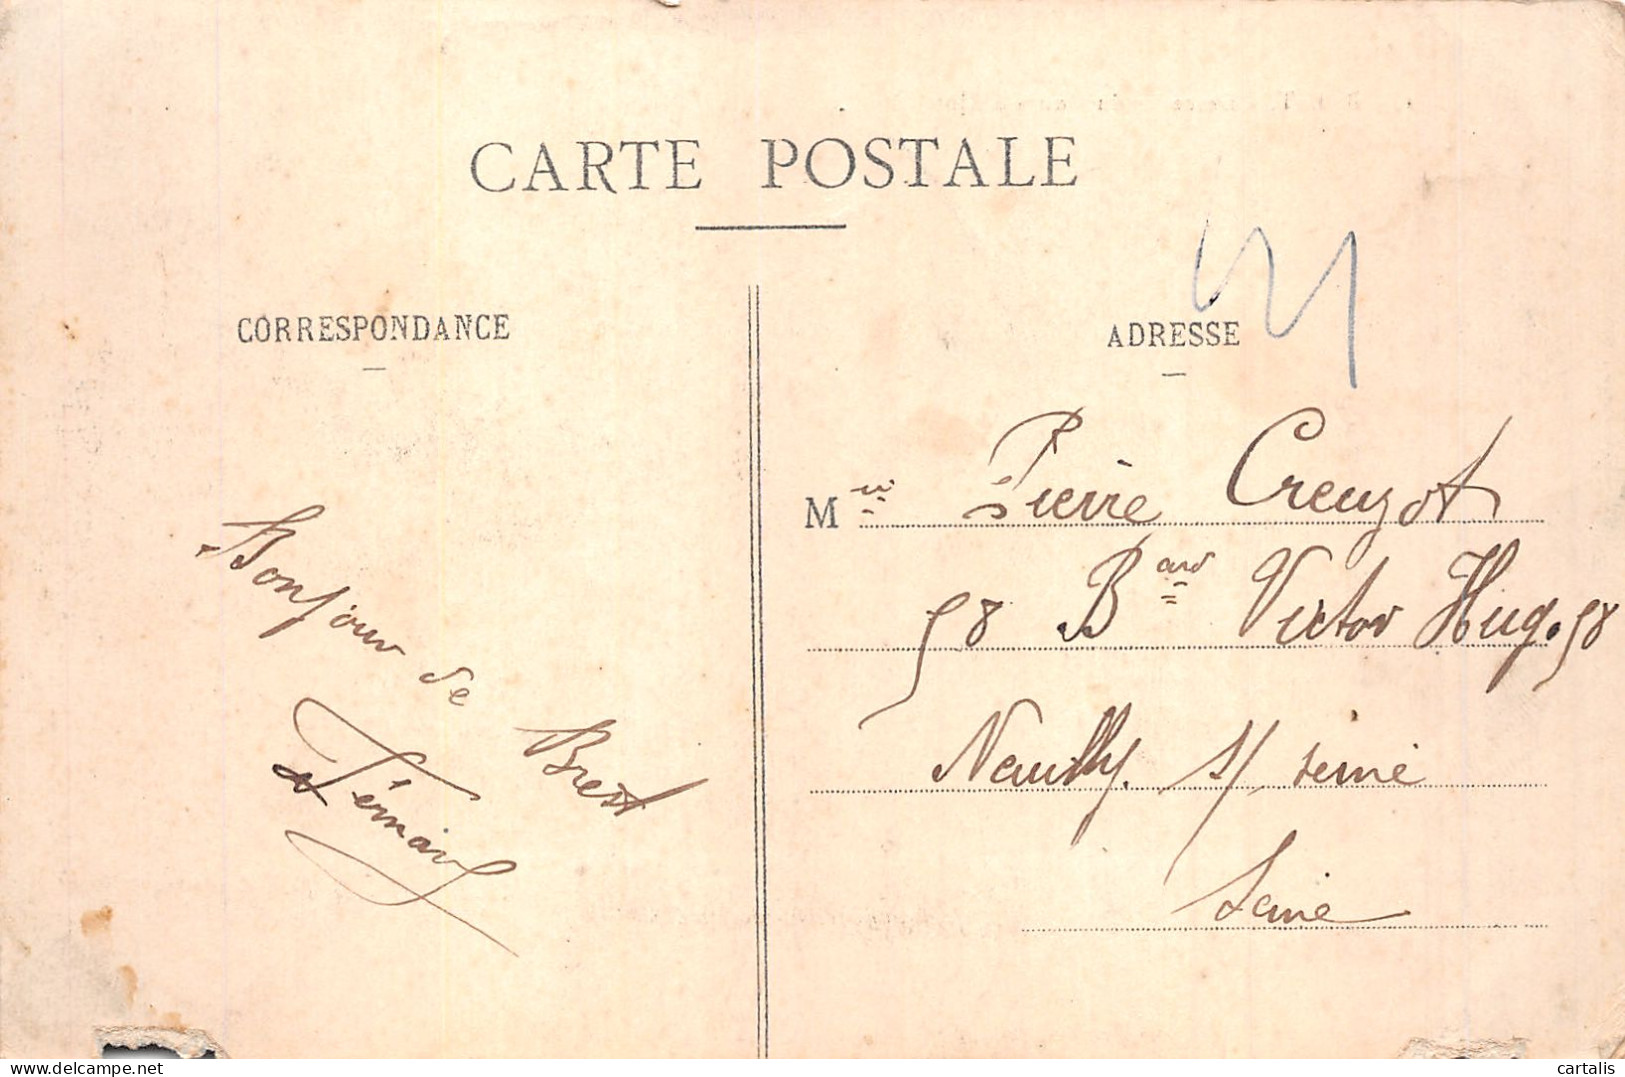 CARTE POSTALE
CORRESPONDANCE
Bonjour de Brest
ADRESSE
M Pierre Creuzot
58 Bard Victor Hugo 58
Neuilly s/ seine
Seine
cartalis
www.delcampe.net